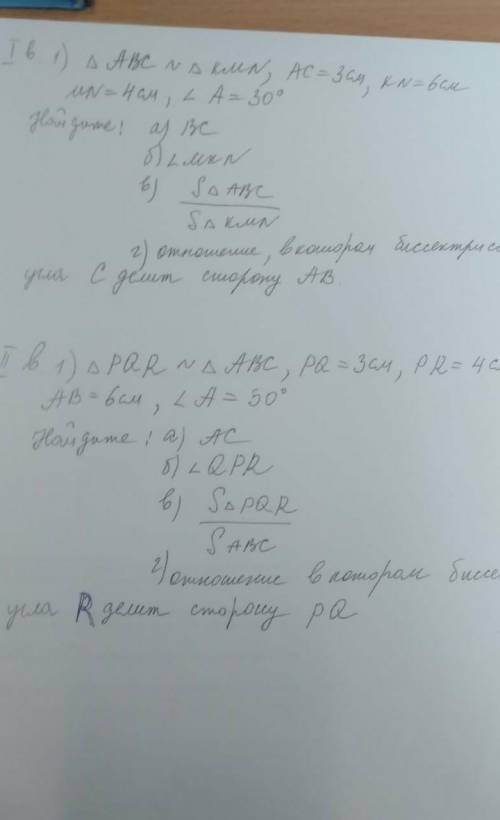 I в 1) △ ABC ~ △ KMN, AC = 3 см, KN = 6 см
MN = 4 см, ∠ A = 30°
Найдите: а) BC
б) ∠MKN
в) S△ ABC
S△ KMN
г) отношение, в котором биссектрис
угла C делит сторону AB.
II в 1) △ PQR ~ △ ABC, PQ = 3 см, PR = 4 с
AB = 6 см, ∠ A = 50°
Найдите: а) AC
б) ∠QPR
в) S△PQR
S ABC
г) отношение в котором биссе
угла R делит сторону PQ